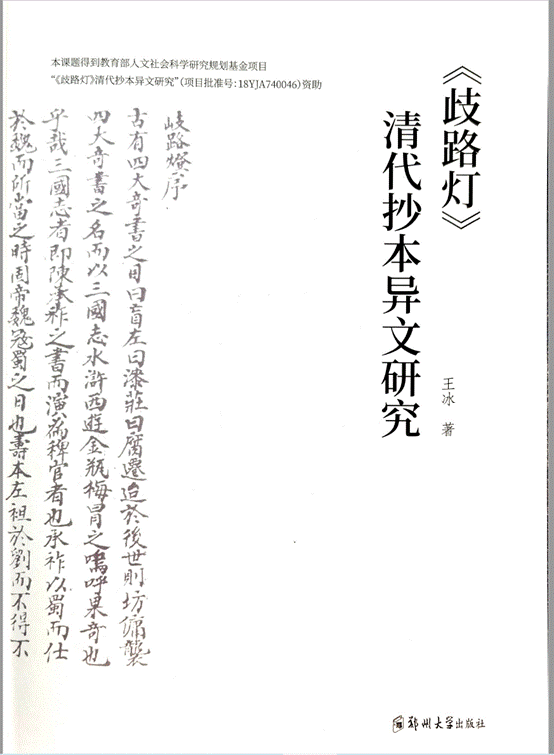 本课题得到教育部人文社会科学研究规划基金项目
“《歧路灯》清代抄本异文研究”（项目批准号：18YJA740046）资助
《歧路灯》
清代抄本异文研究
王冰 著
岐路燈序
古有四大奇書之目曰盲左曰漆莊曰腐遷迨於後世則坊傭襲
四大奇書之名而以三國志水滸西遊金瓶梅冒之嗚呼果奇也
乎哉三國志者即陳承祚之書而演為稗官者也承祚以蜀而仕
於魏而所當之時固帝魏寇蜀之日也壽本左袒於劉而不得不
郑州大学出版社